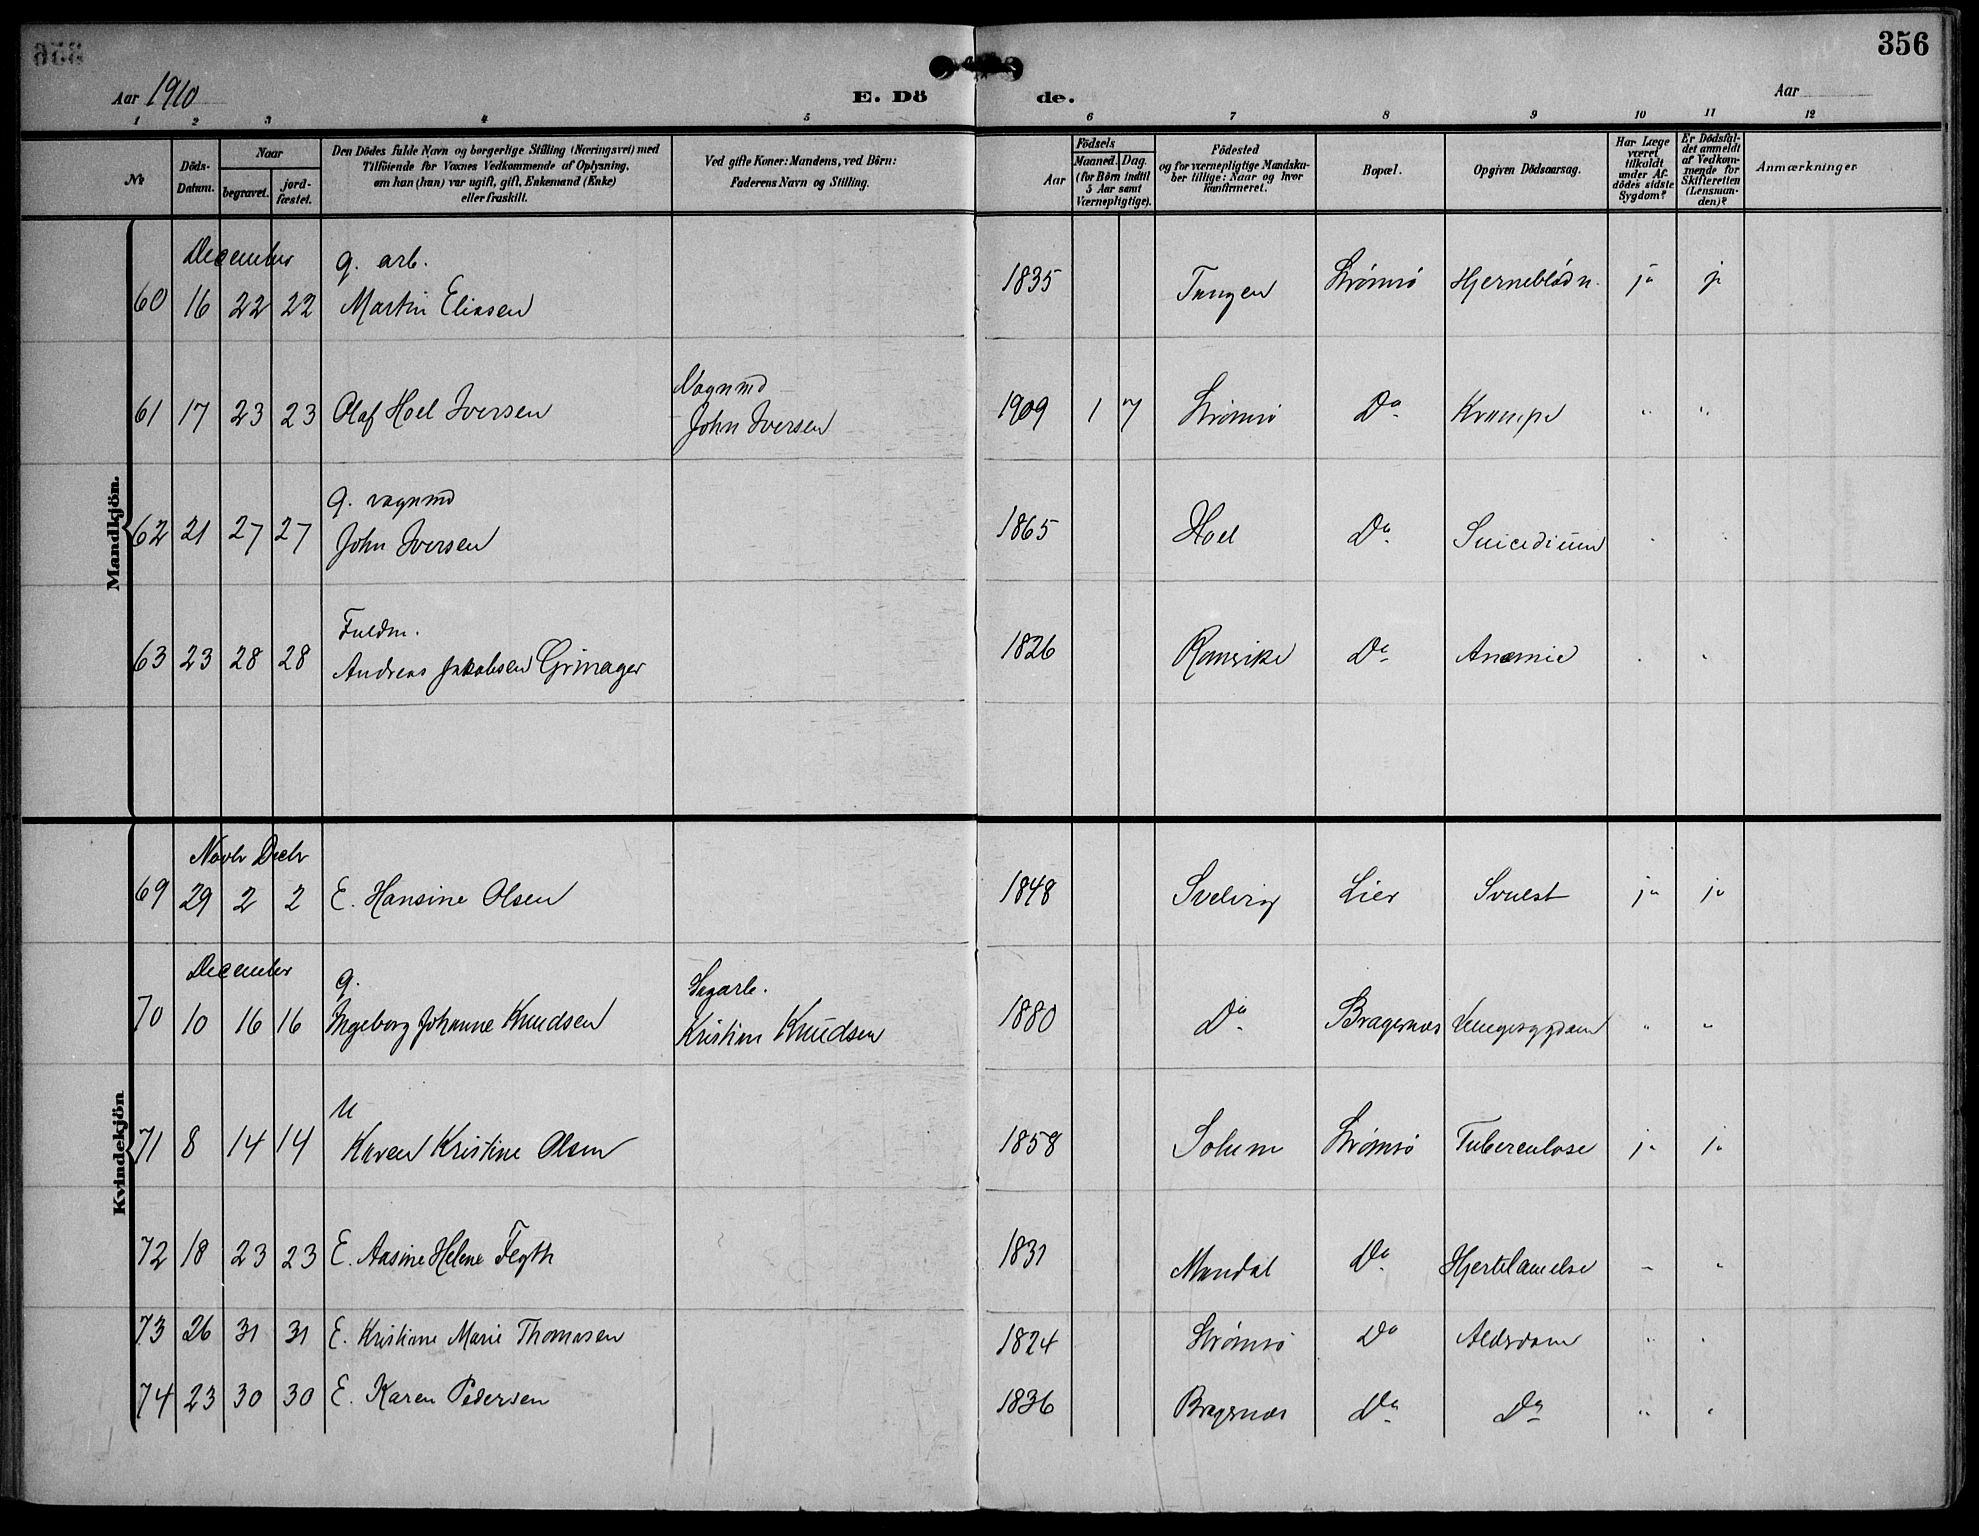 356
Aar 1910
E. Dö de.
Aar
1 2 3 4 5 6 7 8 9 10 11 12
№
Döds-Datum.
Naar
begravet.
jord-fæstet.
Den Dödes fulde Navn og borgerlige Stilling (Næringsvei) med
Tilföiende for Voxnes Vedkommende af Oplysning,
om han (hun) var ugift, gift, Enkemand (Enke)
eller fraskilt.
Ved gifte Koner: Mandens, ved Börn:
Faderens Navn og Stilling.
Födsels
Aar
Maaned. Dag.
(for Börn indtil
5 Aar samt
Værnepligtige).
Födested
og for værnepligtige Mandska-
ber tillige: Naar og hvor
konfirmeret.
Bopæl.
Opgiven Dödsaarsag.
Har Læge
været
tilkaldt
under Af-
dödes sidste
Sygdom?
Er Dödsfal-
det anmeldt
af Vedkom-
mende for
Skifteretten
(Lensman-
den)?
Anmærkninger
Mandkjön.
December g. arb.
60 16 22 22 Martin Eliasen 1835 Tangen Strömsö Hjerneblödn. ja ja
Vognmd
61 17 23 23 Olaf Hoel Iversen John Iversen 1909 1 7 Strömsö Do Krampe " "
g. vognmd
62 21 27 27 John Iversen 1865 Hoel Do Suicidium " "
Fuldm.
63 23 28 28 Andreas Jakobsen Grinager 1826 Romerike Do Anæmie " "
Kvindekjön
Novbr Decbr
69 29 2 2 E. Hansine Olsen 1848 Svelvig Lier Svulst ja ja
December g.
70 10 16 16 Ingeborg Johanne Knudsen Kristian Knudsen 1880 Do Bragernæs Lungesygdom " "
U
71 8 14 14 Karen Kristine Olsen 1858 Solum Strömsö Tuberculose ja ja
72 18 23 23 E. Aasine Helene Fegth 1831 Mandal Do Hjertelamelse " "
73 26 31 31 E. Kristiane Marie Thomasen 1824 Strömsö Do Alderdom " "
74 23 30 30 E. Karen Pedersen 1836 Bragernæs Do Do " "